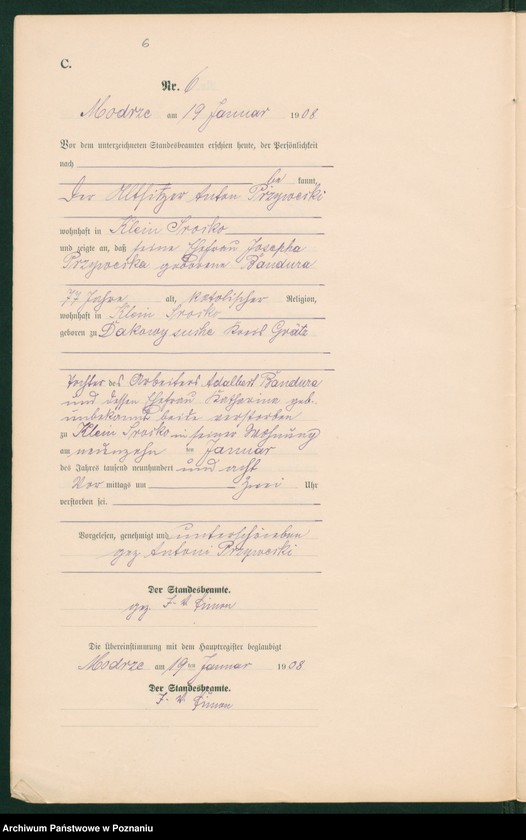 6
C.
Nr. 6
Modrze am 19 Januar 1908
Vor dem unterzeichneten Standesbeamten erschien heute, der Persönlichkeit
nach
be kannt,
Der Altsitzer Anton Przyweski
wohnhaft in Klein Srosko
und zeigte an, daß seine Ehefrau Josepha
Przyweska geborene Bandura
77 Jahre alt, katolischer Religion,
wohnhaft in Klein Srosko
geboren zu Dakowy suche Kreis Grätz
Tochter des Arbeiters Adalbert Bandura
und dessen Ehefrau Katharina geb.
unbekannt beide verstorben
zu Klein Srosko in seiner Wohnung
am neunzehn ten Januar
des Jahres tausend neunhundert und acht
Vor mittags um Zwei Uhr
verstorben sei.
Vorgelesen, genehmigt und unterschrieben
gez Antoni Przyweski
Der Standesbeamte.
gez. J. V. Simon
Die Übereinstimmung mit dem Hauptregister beglaubigt
Modrze am 19 ten Januar 1908
Der Standesbeamte.
J. V. Simon
Archiwum Państwowe w Poznaniu